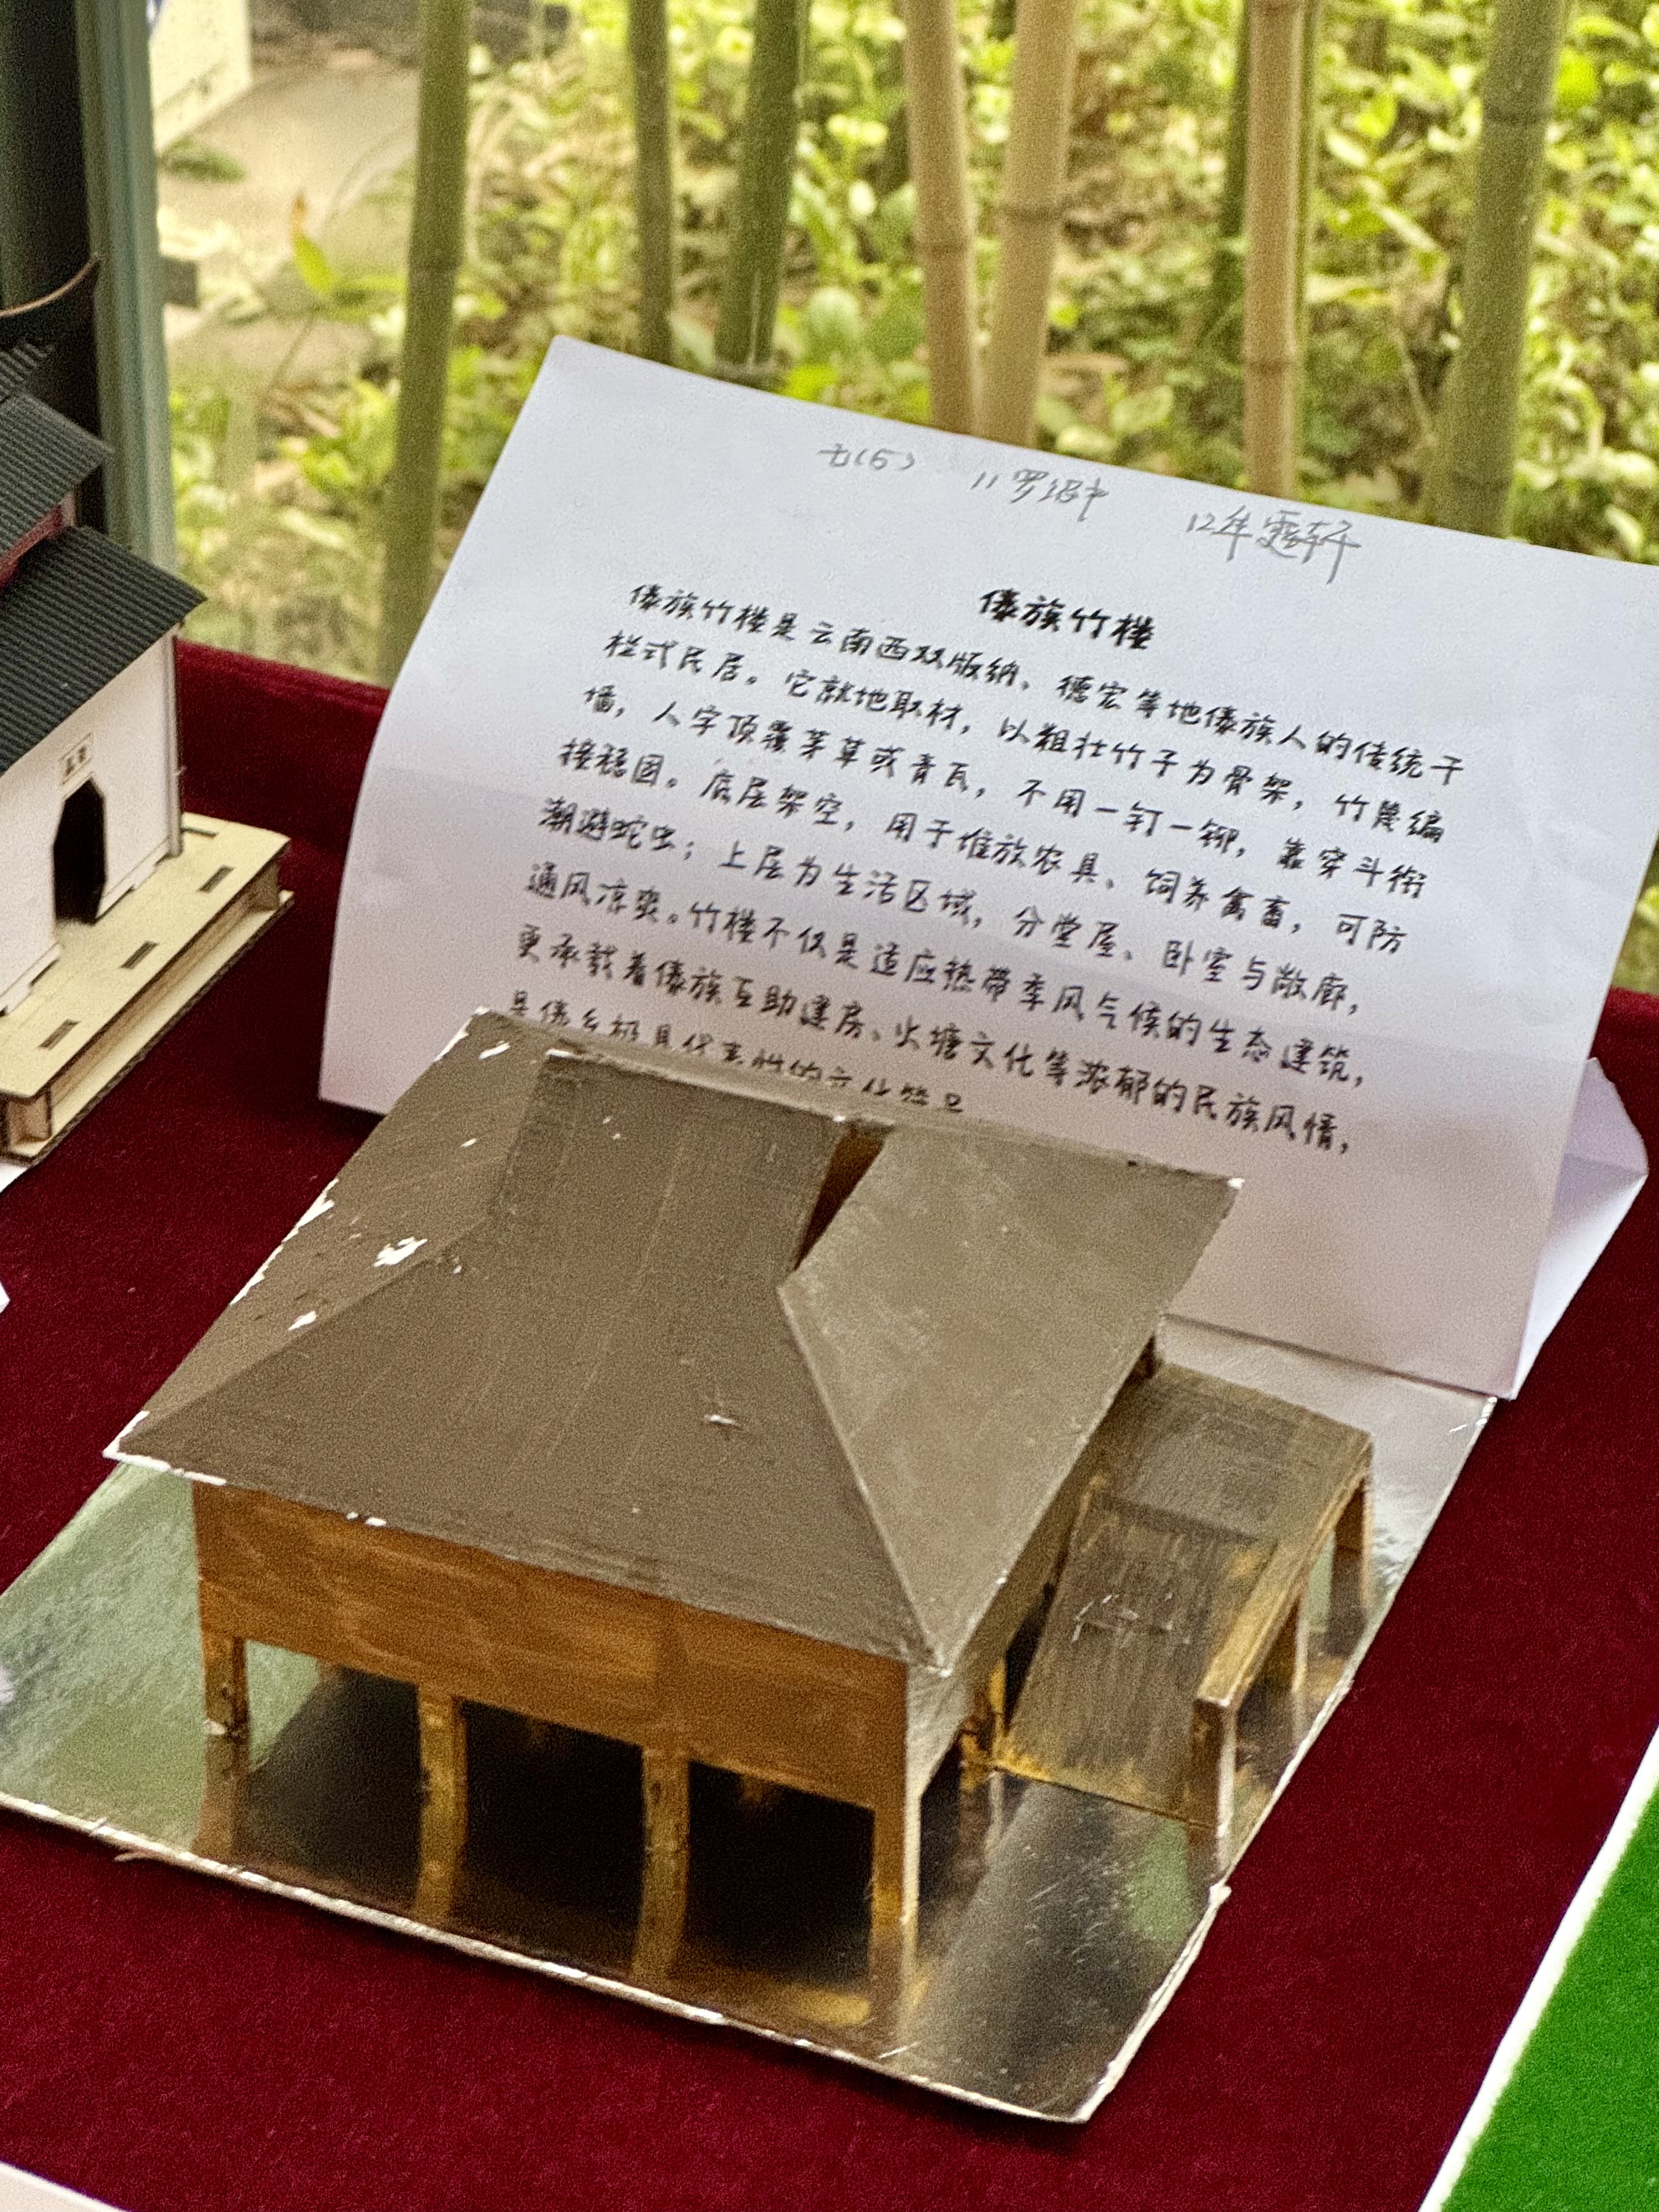 七(5) 11罗 12牟霆轩
傣族竹楼
傣族竹楼是云南西双版纳、德宏等地傣族人的传统干
栏式民居。它就地取材，以粗壮竹子为骨架，竹篾编
墙，人字顶覆茅草或青瓦，不用一钉一铆，靠穿斗衔
接稳固。底层架空，用于堆放农具、饲养禽畜，可防
潮避蛇虫；上层为生活区域，分堂屋、卧室与敞廊，
通风凉爽。竹楼不仅是适应热带季风气候的生态建筑，
更承载着傣族互助建房、火塘文化等浓郁的民族风情，
是傣乡极具代表性的文化符号